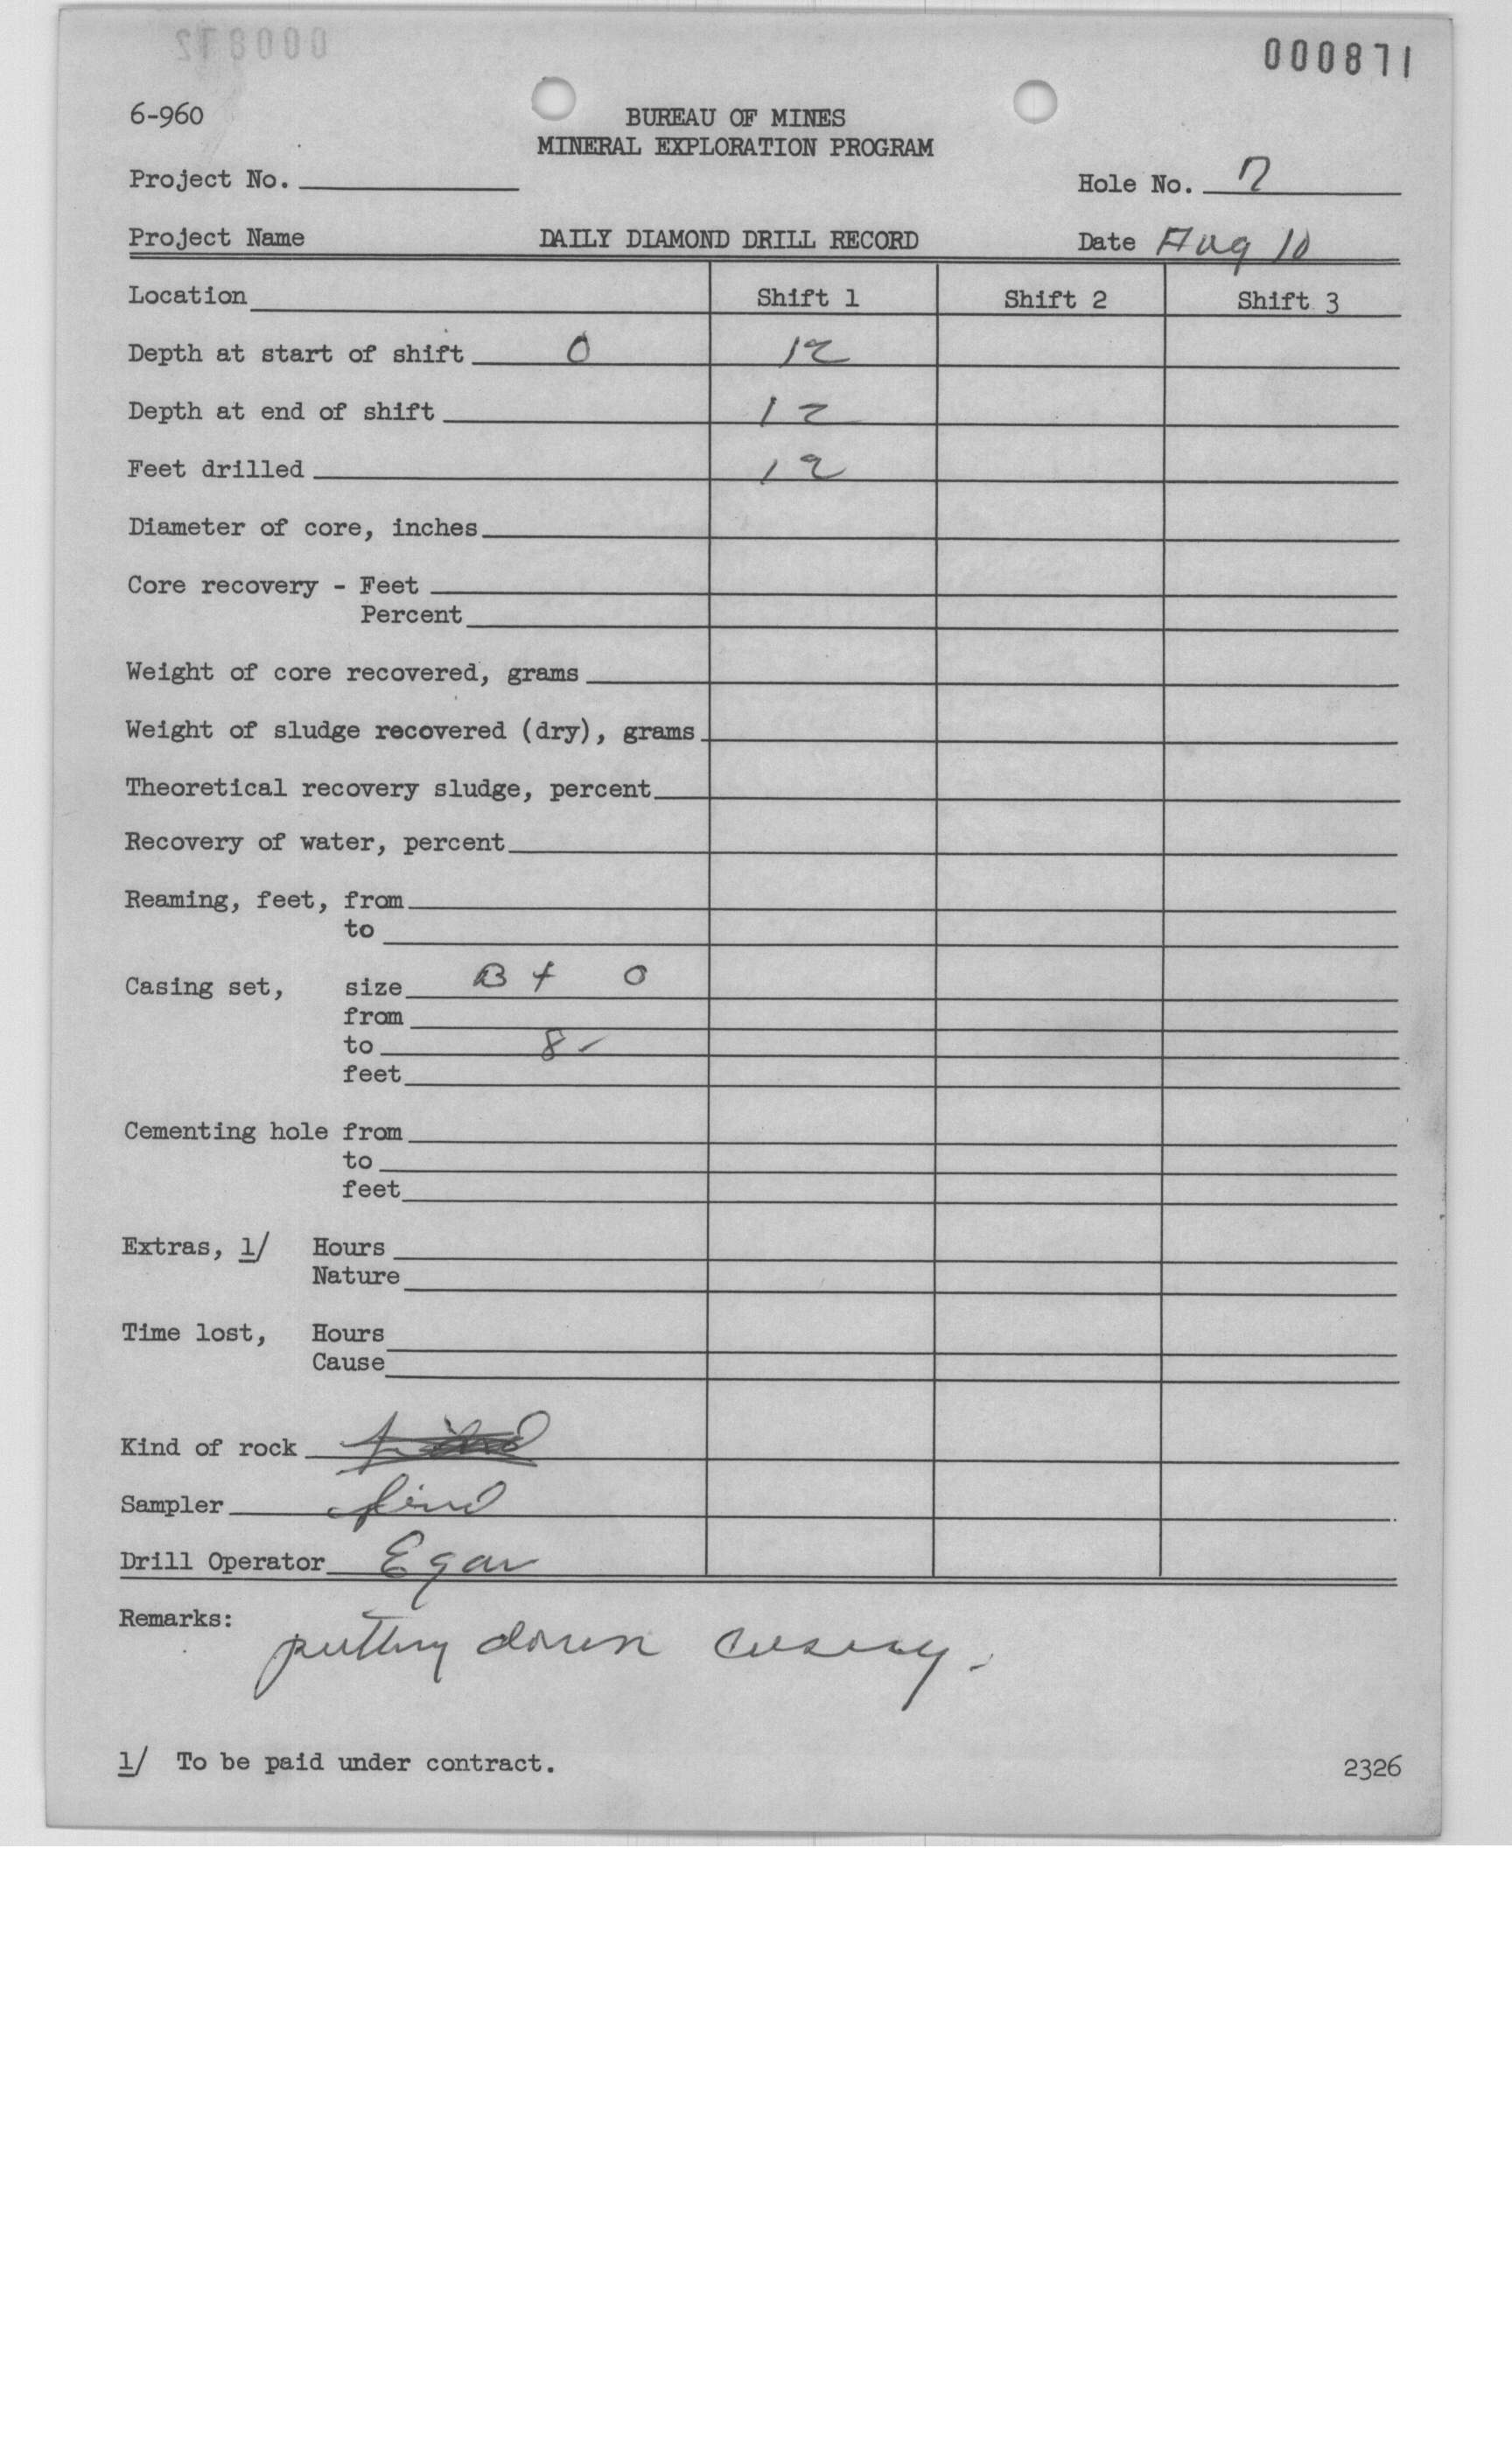 000871
6-960
BUREAU OF MINES
MINERAL EXPLORATION PROGRAM
Project No.
Hole No. 7
Project Name DAILY DIAMOND DRILL RECORD Date Aug 10
Location Shift 1 Shift 2 Shift 3
Depth at start of shift 0 12
Depth at end of shift 12
Feet drilled 12
Diameter of core, inches
Core recovery - Feet
Percent
Weight of core recovered, grams
Weight of sludge recovered (dry), grams
Theoretical recovery sludge, percent
Recovery of water, percent
Reaming, feet, from
to
Casing set, size B 0
from
to 8
feet
Cementing hole from
to
feet
Extras, 1/ Hours
Nature
Time lost, Hours
Cause
Kind of rock
Sampler
Drill Operator Egar
Remarks: putting down casing.
1/ To be paid under contract.
2326